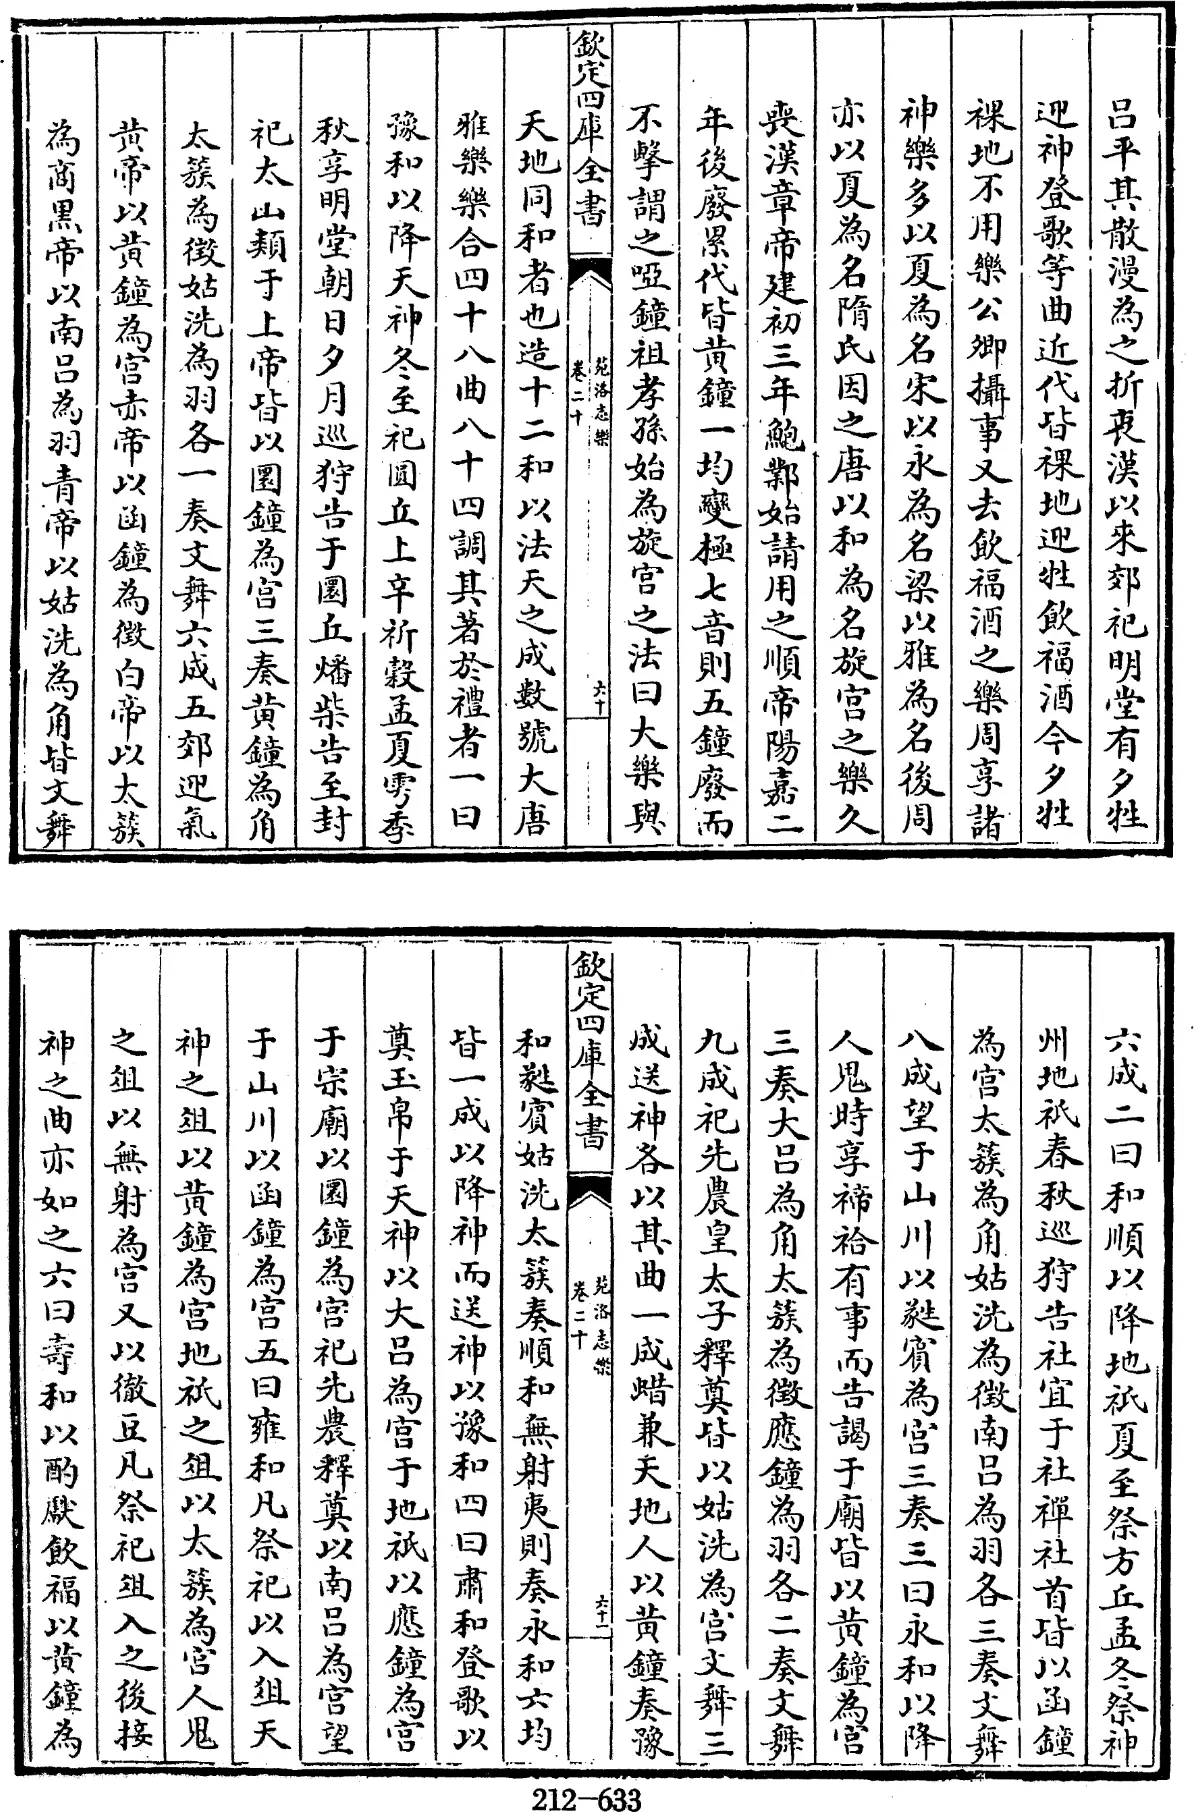 呂平其散漫為之折衷漢以來郊祀明堂有夕牲
迎神登歌等曲近代皆祼地迎牲飲福酒今夕牲
祼地不用樂公卿攝事又去飲福酒之樂周享諸
神樂多以夏為名宋以永為名梁以雅為名後周
亦以夏為名隋氏因之唐以和為名旋宮之樂久
喪漢章帝建初三年鮑鄴始請用之順帝陽嘉二
年後廢累代皆黃鐘一均變極七音則五鐘廢而
不擊謂之啞鐘祖孝孫始為旋宮之法曰大樂與
欽定四庫全書
苑洛志樂
卷二十
六十
天地同和者也造十二和以法天之成數號大唐
雅樂樂合四十八曲八十四調其著於禮者一曰
豫和以降天神冬至祀圓丘上辛祈穀孟夏雩季
秋享明堂朝日夕月巡狩告于圜丘燔柴告至封
祀太山類于上帝皆以圜鐘為宮三奏黃鐘為角
太簇為徵姑洗為羽各一奏文舞六成五郊迎氣
黃帝以黃鐘為宮赤帝以函鐘為徵白帝以太簇
為商黑帝以南呂為羽青帝以姑洗為角皆文舞
六成二曰和順以降地祇夏至祭方丘孟冬祭神
州地祇春秋巡狩告社宜于社禪社首皆以函鐘
為宮太簇為角姑洗為徵南呂為羽各三奏文舞
八成望于山川以蕤賓為宮三奏三曰永和以降
人鬼時享禘祫有事而告謁于廟皆以黃鐘為宮
三奏大呂為角太簇為徵應鐘為羽各二奏文舞
九成祀先農皇太子釋奠皆以姑洗為宮文舞三
成送神各以其曲一成蜡兼天地人以黃鐘奏豫
欽定四庫全書
苑洛志樂
卷二十
六十一
和蕤賓姑洗太簇奏順和無射夷則奏永和六均
皆一成以降神而送神以豫和四曰肅和登歌以
奠玉帛于天神以大呂為宮于地祇以應鐘為宮
于宗廟以圜鐘為宮祀先農釋奠以南呂為宮望
于山川以函鐘為宮五曰雍和凡祭祀以入俎天
神之俎以黃鐘為宮地祇之俎以太簇為宮人鬼
之俎以無射為宮又以徹豆凡祭祀俎入之後接
神之曲亦如之六曰壽和以酌獻飲福以黃鐘為
212-633